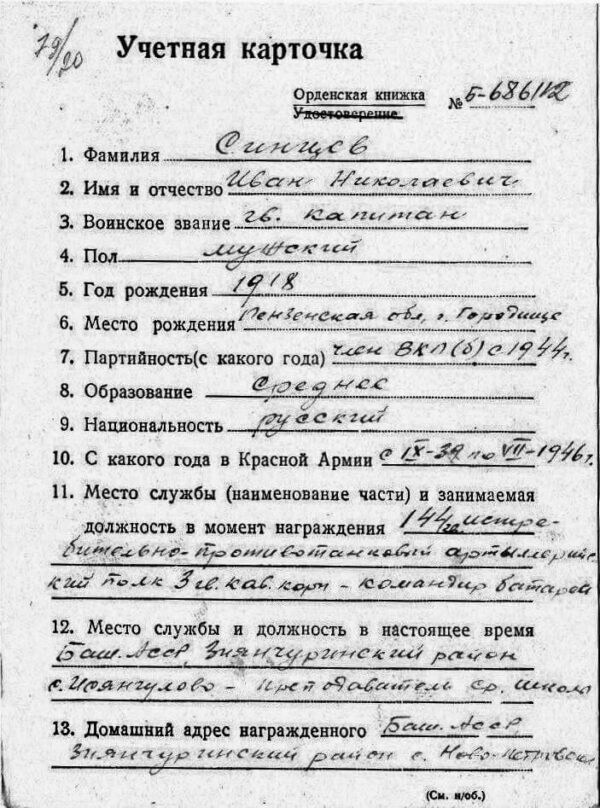 79/20
Учетная карточка
Орденская книжка
Удостоверение № Б-686112
1. Фамилия Синцев
2. Имя и отчество Иван Николаевич
3. Воинское звание гв. капитан
4. Пол мужский
5. Год рождения 1918
6. Место рождения Пензенская обл, г. Городище
7. Партийность(с какого года) член ВКП(б) с 1944г.
8. Образование среднее
9. Национальность русский
10. С какого года в Красной Армии с IX-39 по VII-1946г.
11. Место службы (наименование части) и занимаемая
должность в момент награждения 144 гв истре-
бительно-противотанковый артиллерийс
кий полк 3 гв. кав. корп - командир батареи
12. Место службы и должность в настоящее время
Баш. АССР, Зианчуринский район
с. Исянгулово - преподаватель ср. школы
13. Домашний адрес награжденного Баш. АССР,
Зианчуринский район с. Ново-Петровск
(См. н/об.)